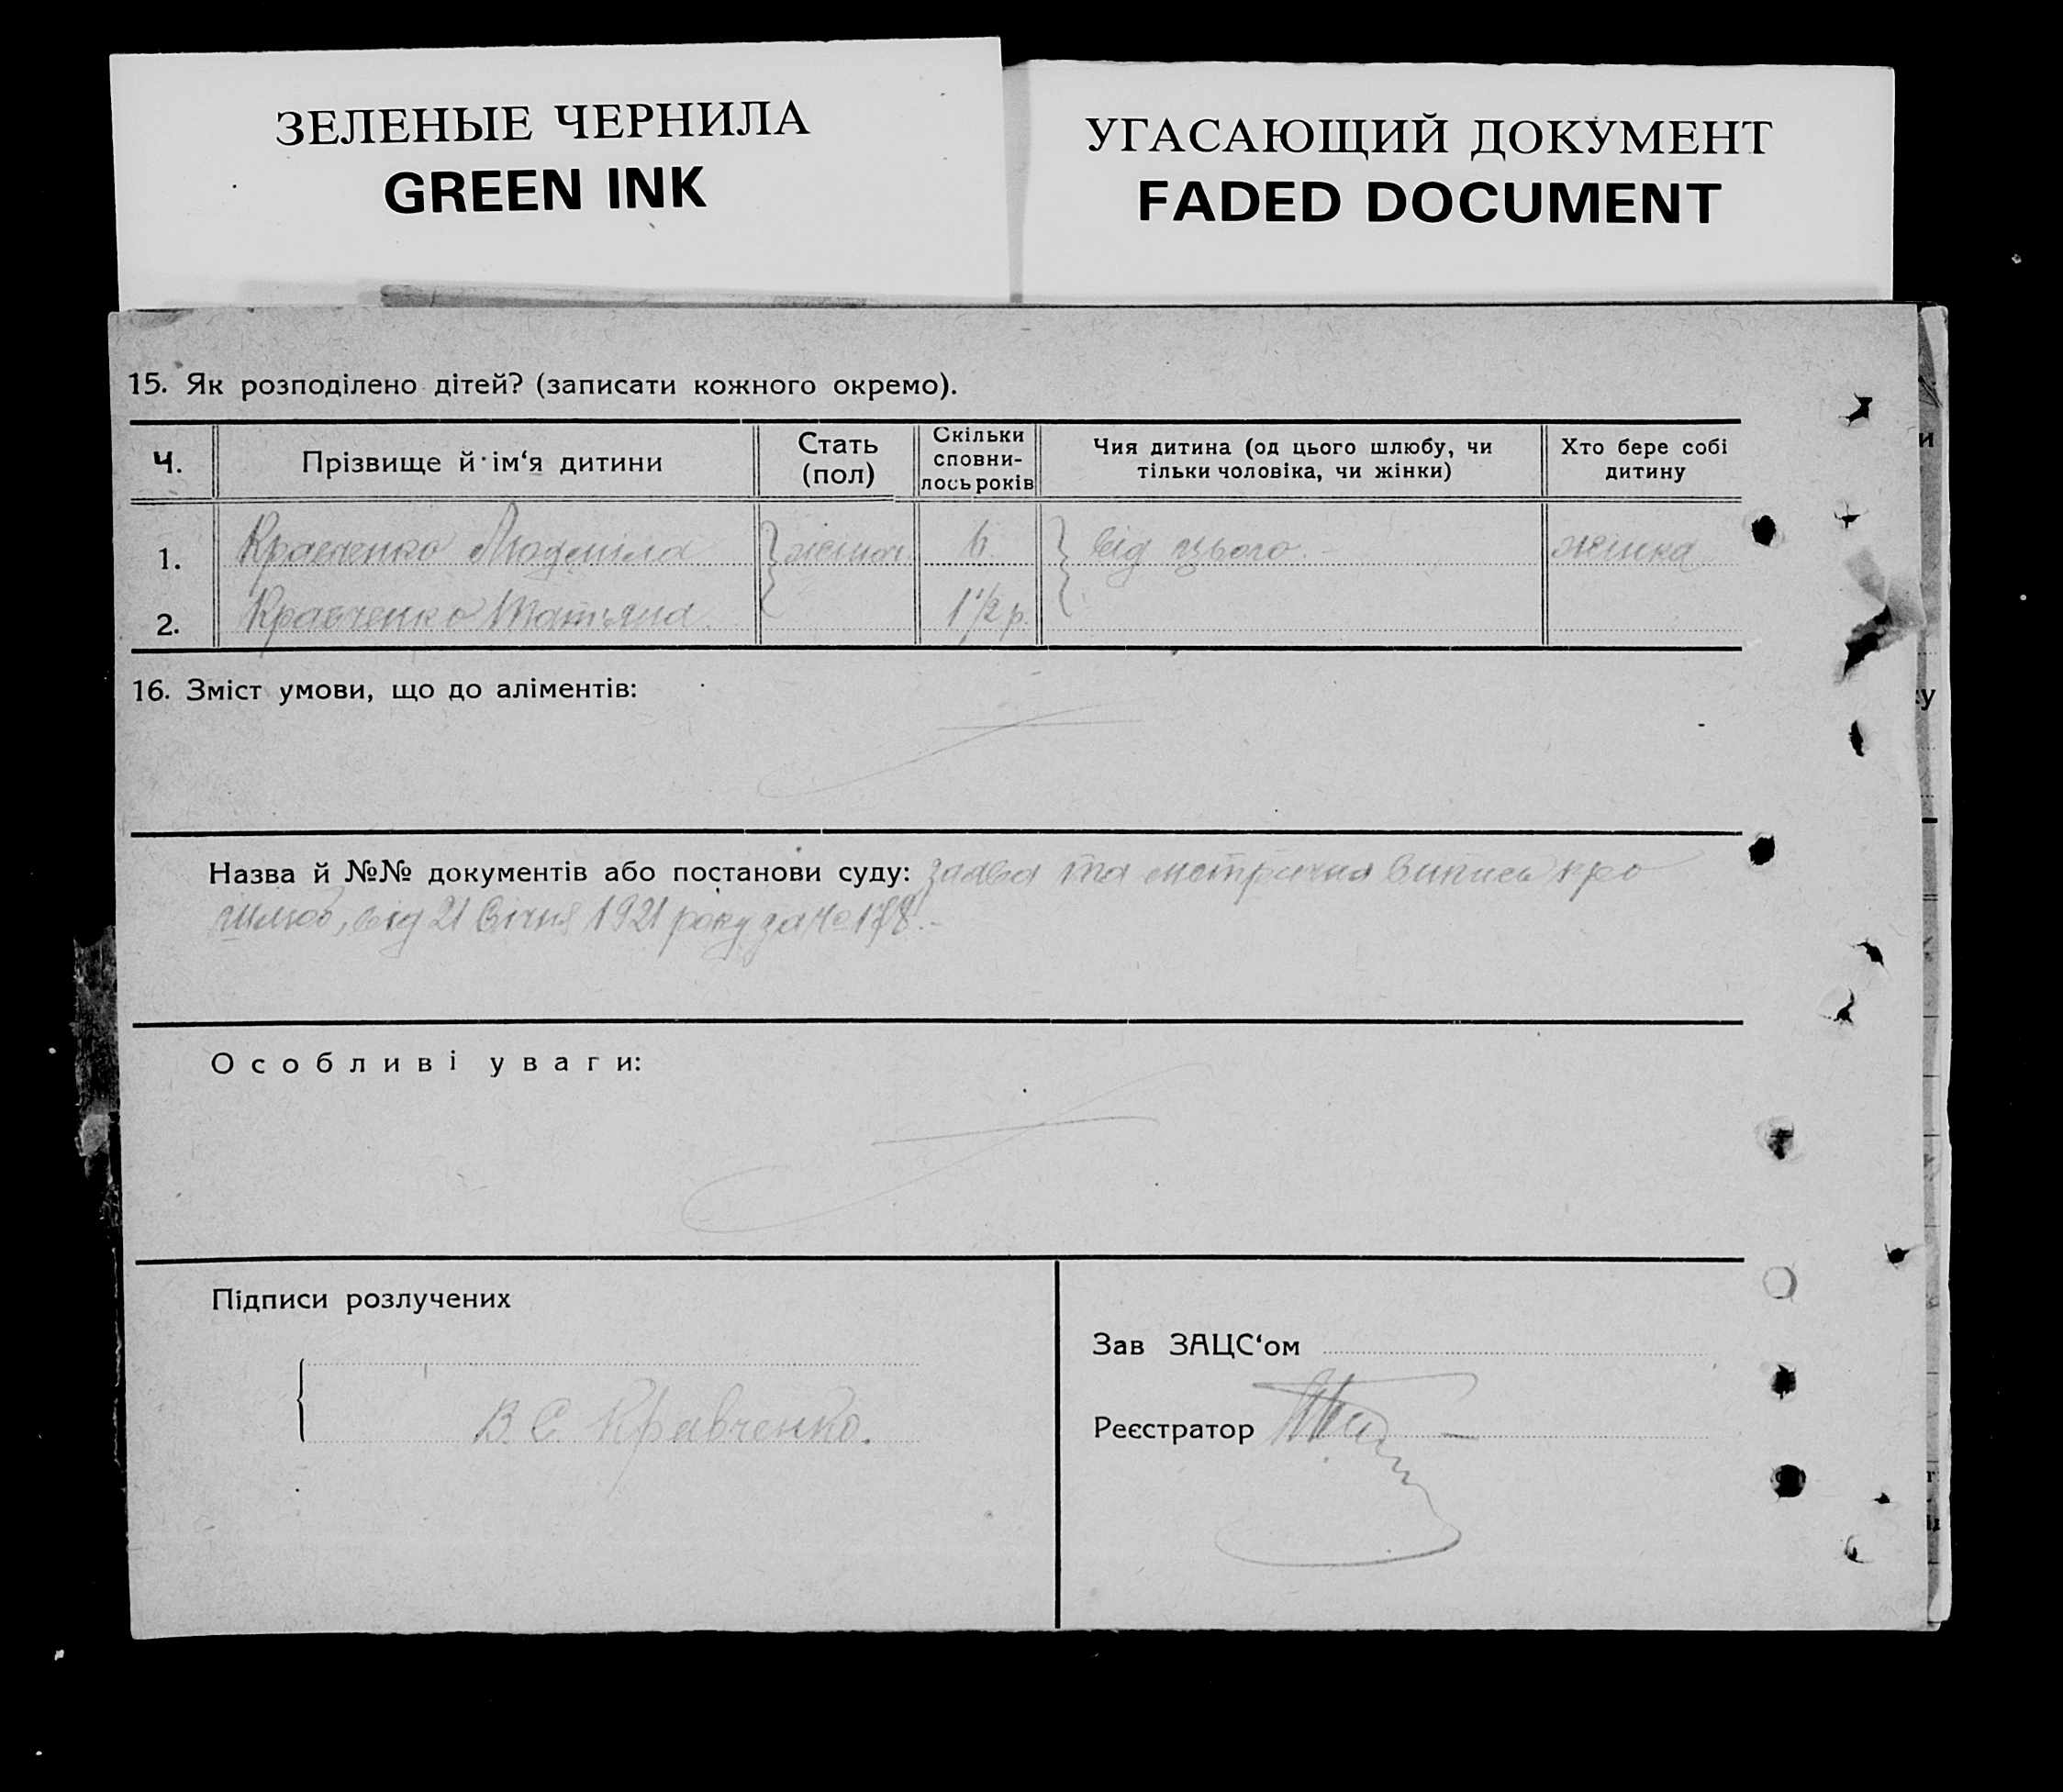 ЗЕЛЕНЫЕ ЧЕРНИЛА
GREEN INK
УГАСАЮЩИЙ ДОКУМЕНТ
FADED DOCUMENT
15. Як розподілено дітей? (записати кожного окремо).
Ч. Прізвище й ім‘я дитини Стать (пол) Скільки сповнилось років Чия дитина (од цього шлюбу, чи тільки чоловіка, чи жінки) Хто бере собі дитину
1. Кравченко Людміла жіноч. 6 від цього. жінка
2. Кравченко Татьяна 1 1/2 р.
16. Зміст умови, що до аліментів:
Назва й №№ документів або постанови суду: заява та метрична випись про
шлюб, від 21 Січня 1921 року за № 178.-
Особливі уваги:
Підписи розлучених
В. С. Кравченко.
Зав ЗАЦС‘ом
Реєстратор